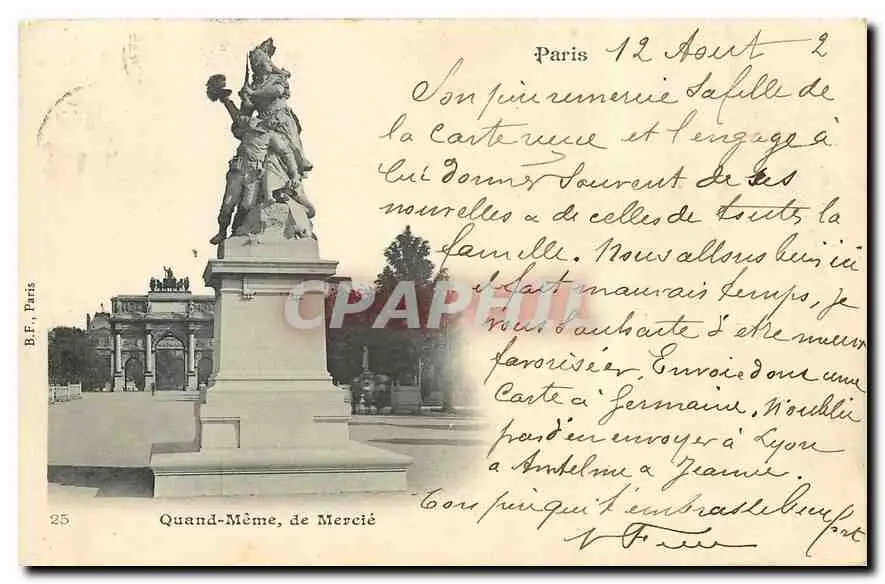 Paris 12 Août 2
Son père remercie sa fille de
la carte reçue et l'engage à
lui donner souvent de ses
nouvelles & de celles de toute la
famille. Nous allons bien ici
il fait mauvais temps, je
vous souhaite d'etre mieux
favorisées. Envoie donc une
carte à Germaine, N'oublie
pas d'en envoyer à Lyon
a Anthelme & Jeanne.
Ton père qui t'embrasse bien
fort
B.F., Paris
CPAPHIL
25 Quand-Même, de Mercié